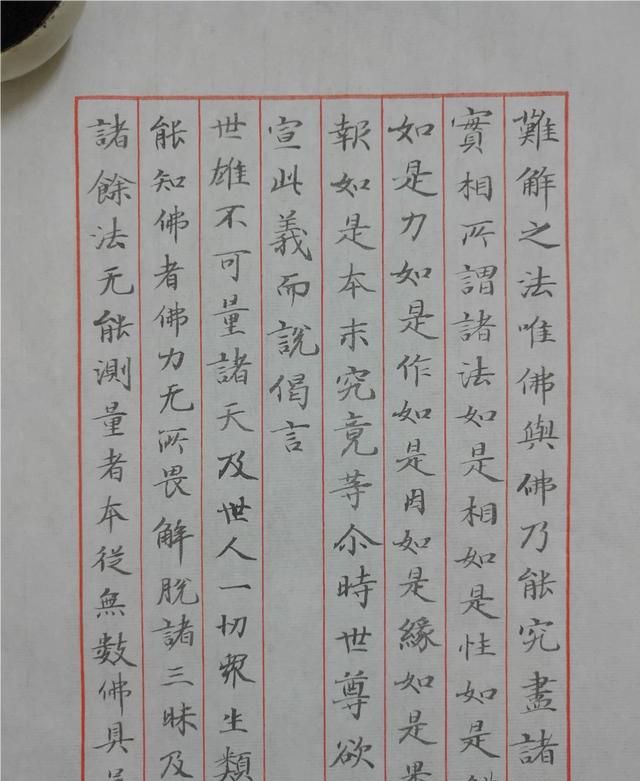 難解之法唯佛與佛乃能究盡諸
實相所謂諸法如是相如是性如是
如是力如是作如是因如是緣如是果
報如是本末究竟等尒時世尊欲
宣此義而說偈言
世雄不可量諸天及世人一切眾生類
能知佛者佛力无所畏解脫諸三昧及
諸餘法无能測量者本從無數佛具